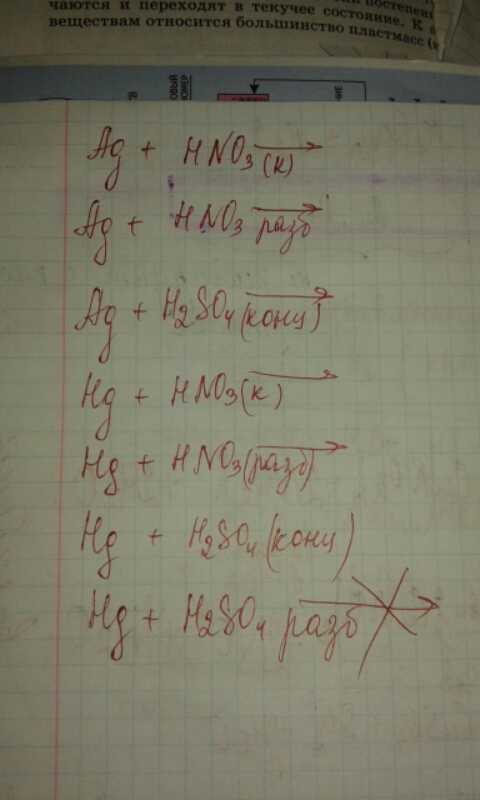 чаются и переходят в текучее состояние. К
веществам относится большинство пластмасс
Ag + HNO₃(к) →
Ag + HNO₃ разб →
Ag + H₂SO₄(конц) →
Hg + HNO₃(к) →
Hg + HNO₃(разб) →
Hg + H₂SO₄(конц)
Hg + H₂SO₄ разб →